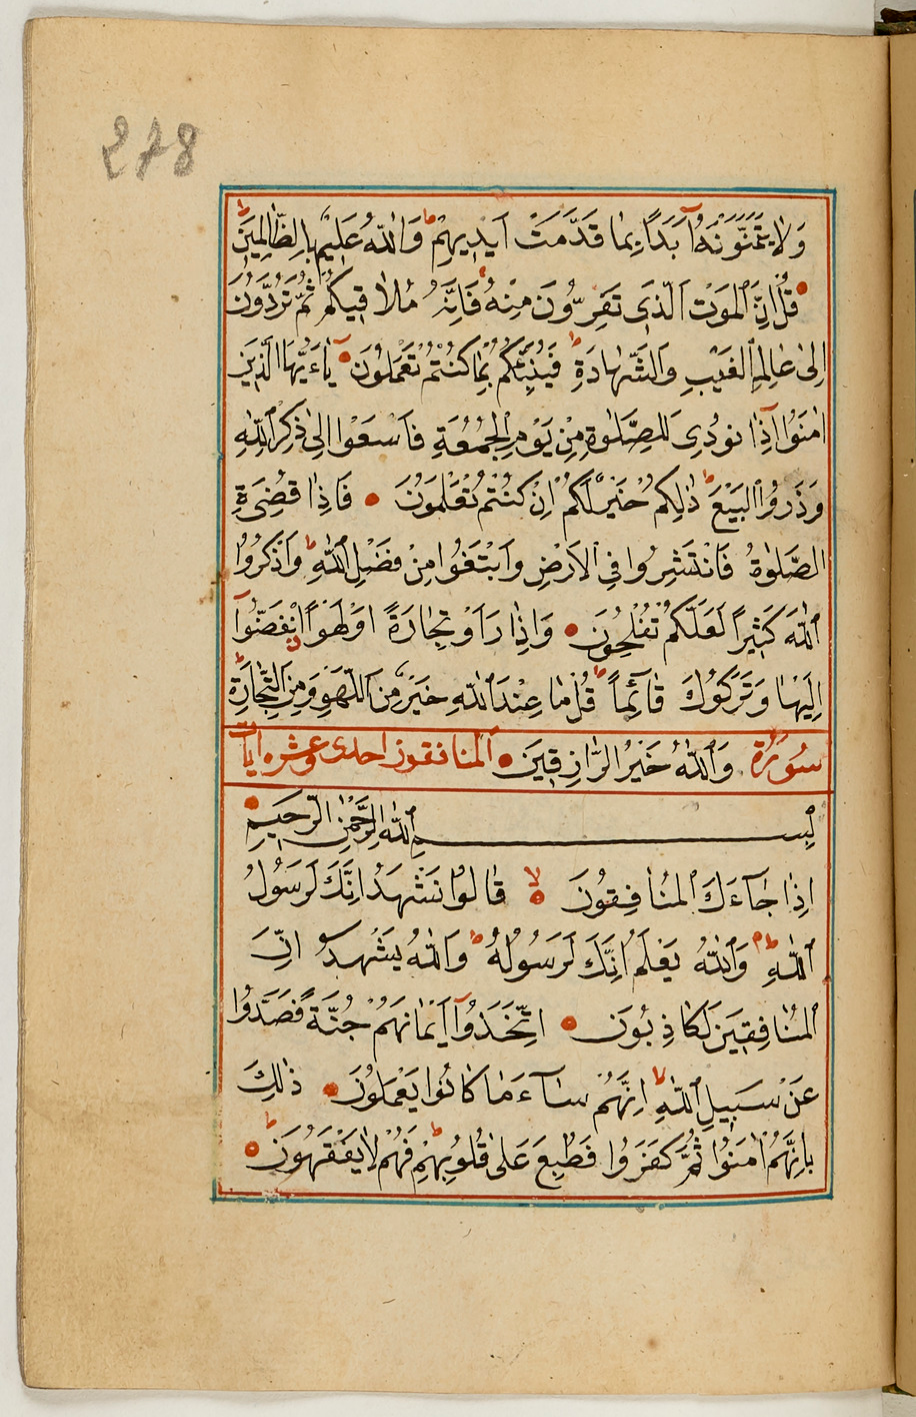 278
وَلَا يَتَمَنَّوْنَهُٓ اَبَدًا بِمَا قَدَّمَتْ اَيْدِيهِمْ وَاللّٰهُ عَلِيمٌ بِالظَّالِمِينَ
قُلْ اِنَّ الْمَوْتَ الَّذِى تَفِرُّونَ مِنْهُ فَاِنَّهُ مُلَاقِيكُمْ ثُمَّ تُرَدُّونَ
اِلٰى عَالِمِ الْغَيْبِ وَالشَّهَادَةِ فَيُنَبِّئُكُمْ بِمَا كُنْتُمْ تَعْمَلُونَ يَٓاءَيُّهَا الَّذِينَ
اٰمَنُٓوا اِذَا نُودِىَ لِلصَّلٰوةِ مِنْ يَوْمِ الْجُمُعَةِ فَاسْعَوْا اِلٰى ذِكْرِ اللّٰهِ
وَذَرُوا الْبَيْعَ ذٰلِكُمْ خَيْرٌ لَكُمْ اِنْ كُنْتُمْ تَعْلَمُونَ فَاِذَا قُضِيَةِ
الصَّلٰوةُ فَانْتَشِرُوا فِى الْاَرْضِ وَابْتَغُوا مِنْ فَضْلِ اللّٰهِ وَاذْكُرُوا
اللّٰهَ كَثِيرًا لَعَلَّكُمْ تُفْلِحُونَ وَاِذَا رَاَوْ تِجَارَةً اَوْ لَهْوًا انْفَضُّٓوا
اِلَيْهَا وَتَرَكُوكَ قَٓائِمًا قُلْ مَا عِنْدَ اللّٰهِ خَيْرٌ مِنَ اللَّهْوِ وَمِنَ التِّجَارَةِ
سُورَةُ وَاللّٰهُ خَيْرُ الرَّازِقِينَ الْمُنَافِقُونَ احدى وعشره ايات
بِسْمِ اللّٰهِ الرَّحْمٰنِ الرَّحِيمِ
اِذَا جَٓاءَكَ الْمُنَافِقُونَ لا قَالُوا نَشْهَدُ اِنَّكَ لَرَسُولُ
اللّٰهِ وَاللّٰهُ يَعْلَمُ اِنَّكَ لَرَسُولُهُ وَاللّٰهُ يَشْهَدُ اِنَّ
الْمُنَافِقِينَ لَكَاذِبُونَ اِتَّخَذُٓوا اَيْمَانَهُمْ جُنَّةً فَصَدُّوا
عَنْ سَبِيلِ اللّٰهِ اِنَّهُمْ سَٓاءَ مَا كَانُوا يَعْمَلُونَ ذٰلِكَ
بِاَنَّهُمْ اٰمَنُوا ثُمَّ كَفَرُوا فَطُبِعَ عَلٰى قُلُوبِهِمْ فَهُمْ لَا يَفْقَهُونَ